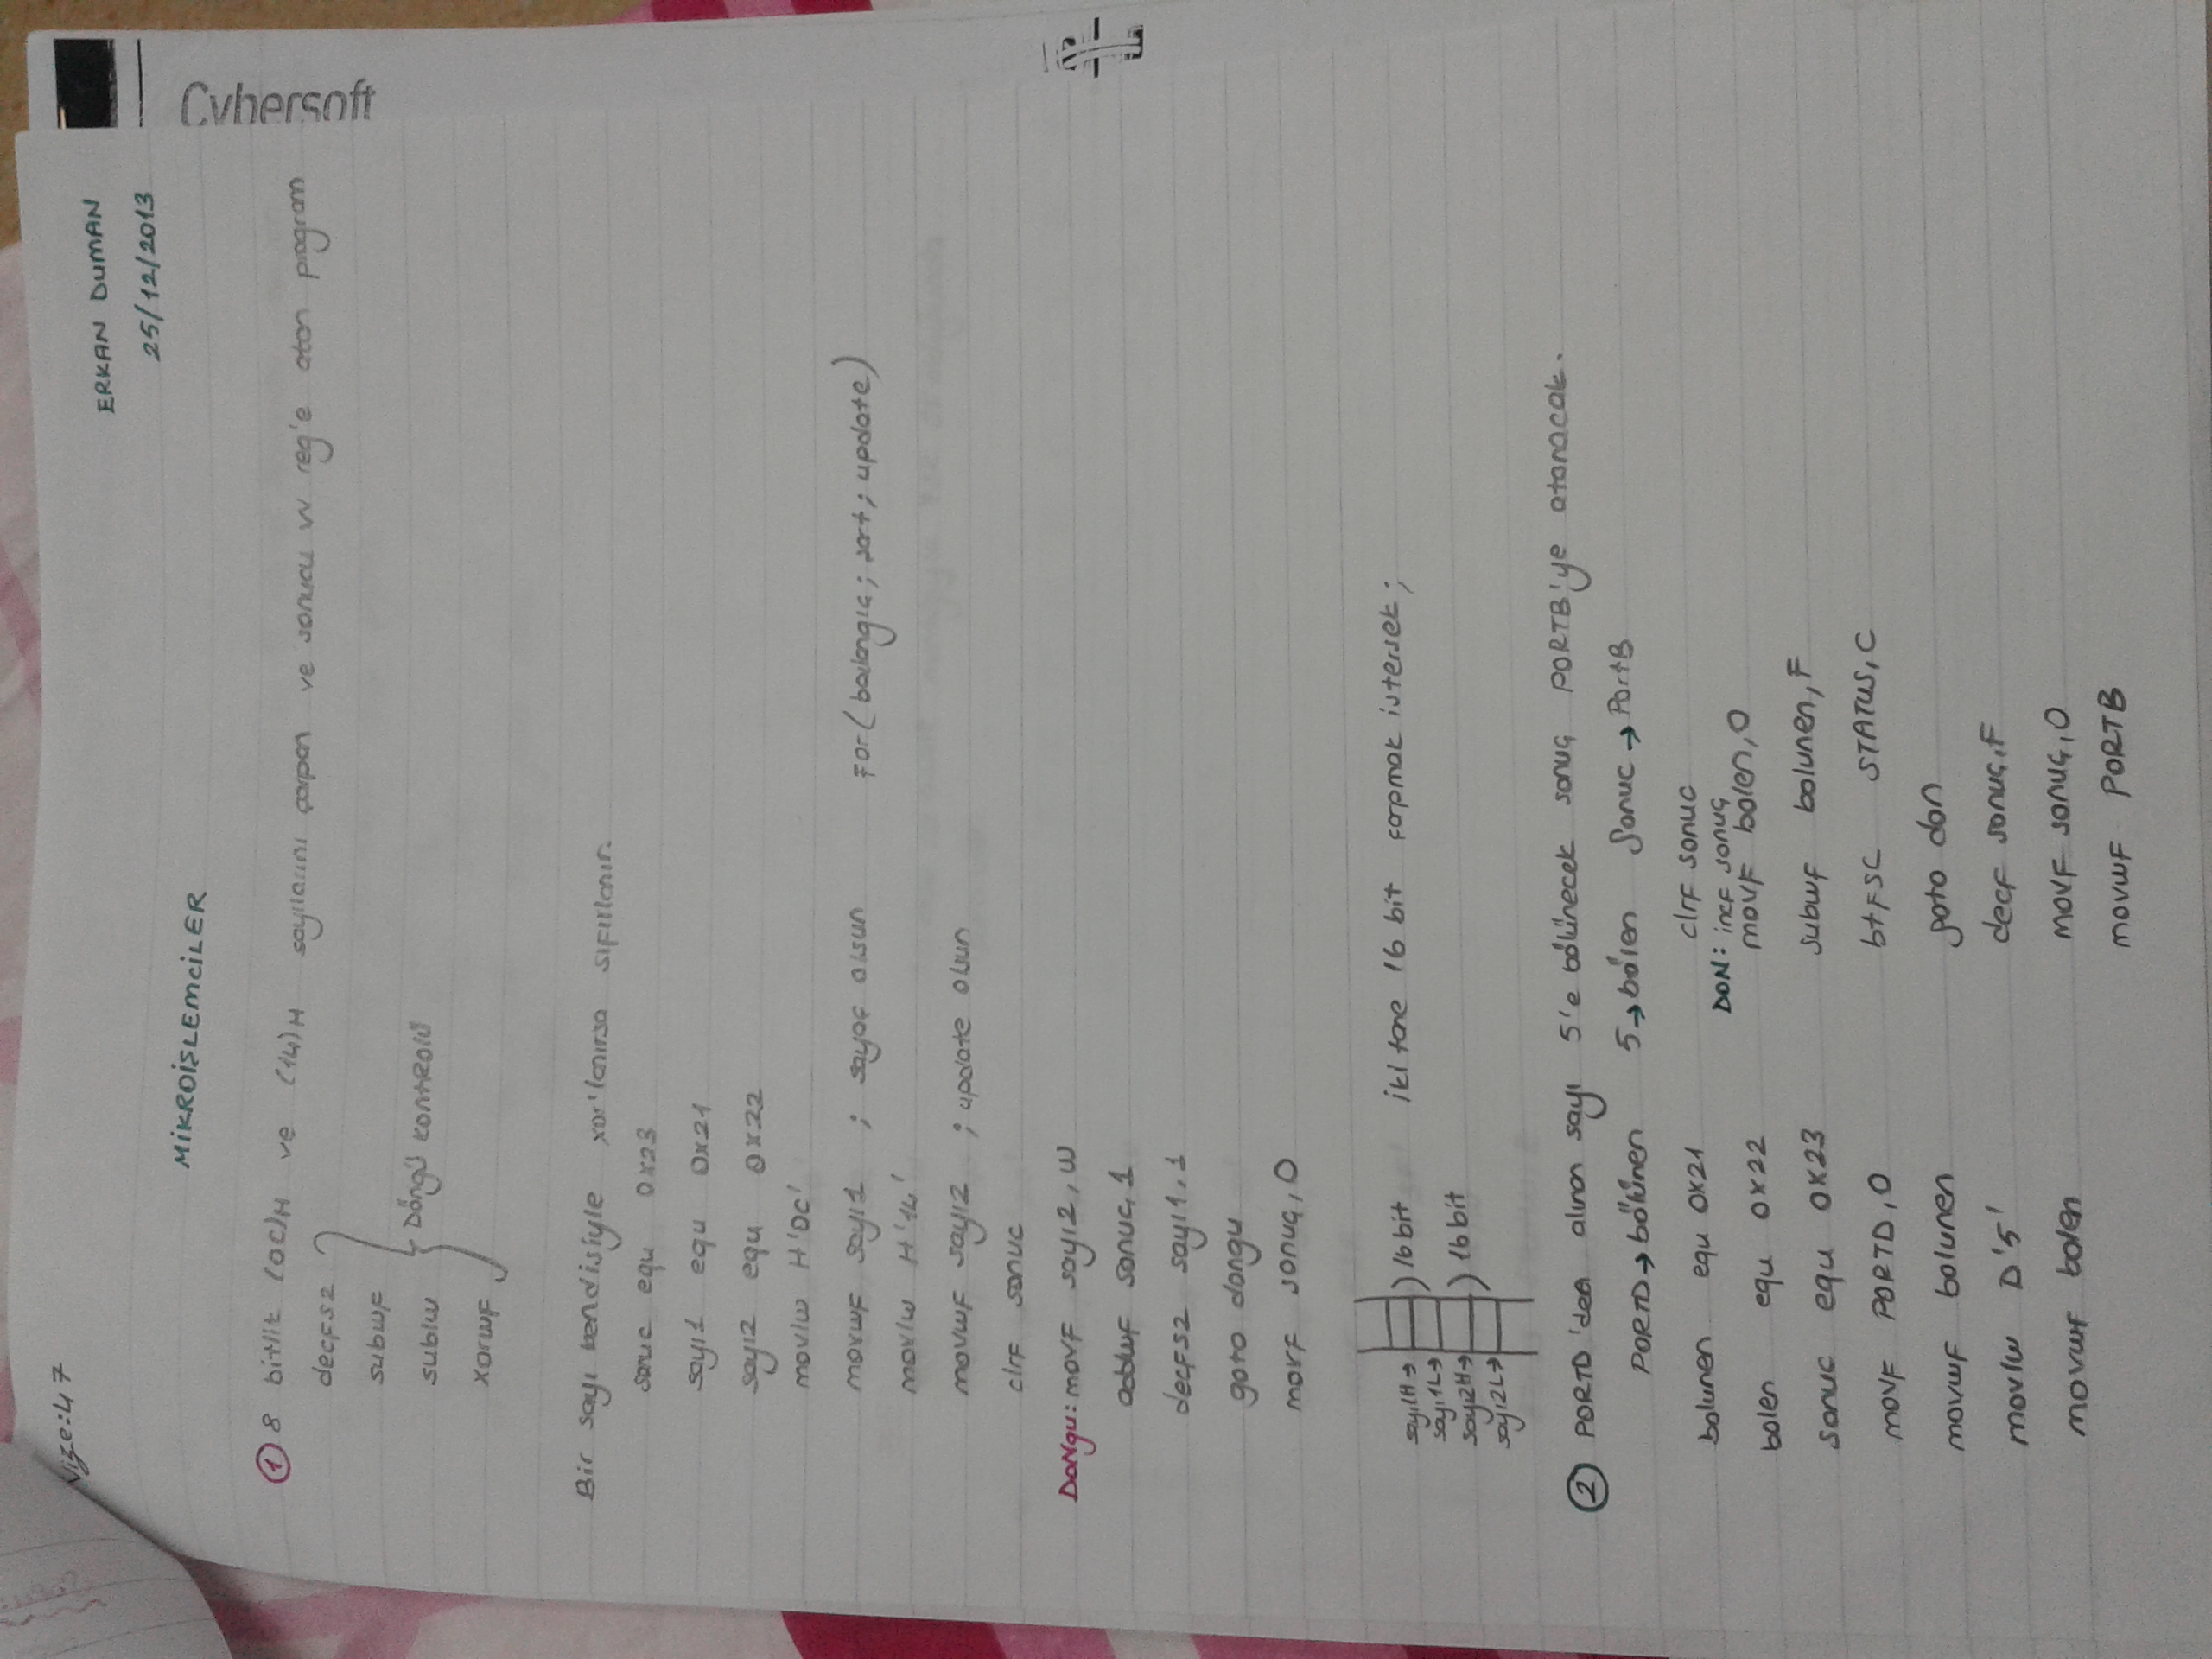 Vize:47
ERKAN DUMAN
25/12/2013
MİKROİŞLEMCİLER
① 8 bitlik (0C)H ve (14)H sayılarını çarpan ve sonucu W reg'e atan program
decfsz
subwf
sublw
xorwf
Döngü kontrolü
Bir sayı kendisiyle xor'lanırsa sıfırlanır.
sonuc equ 0x23
sayı1 equ 0x21
sayı2 equ 0x22
movlw H'0C'
movwf sayı1 ; sayaç olsun
for(başlangıç; şart; update)
movlw H'14'
movwf sayı2 ; update olsun
clrf sonuc
DONgu: movf sayı2, w
addwf sonuc, 1
decfsz sayı1, 1
goto dongu
movf sonuç, 0
sayı1H→
sayı1L→
sayı2H→
sayı2L→
16 bit
16 bit
iki tane 16 bit çarpmak istersek;
② PORTD'den alınan sayı 5'e bölünecek sonuç PORTB'ye atanacak.
PORTD → bölünen 5 → bölen Sonuc → PortB
bolunen equ 0x21
bolen equ 0x22
sonuc equ 0x23
movf PORTD, 0
movwf bolunen
movlw D'5'
movwf bolen
clrf sonuc
DON: incf sonuç
movf bolen, 0
subwf bolunen, F
btfsc STATUS, C
goto don
decf sonuç, F
movf sonuç, 0
movwf PORTB
Cyhersoft